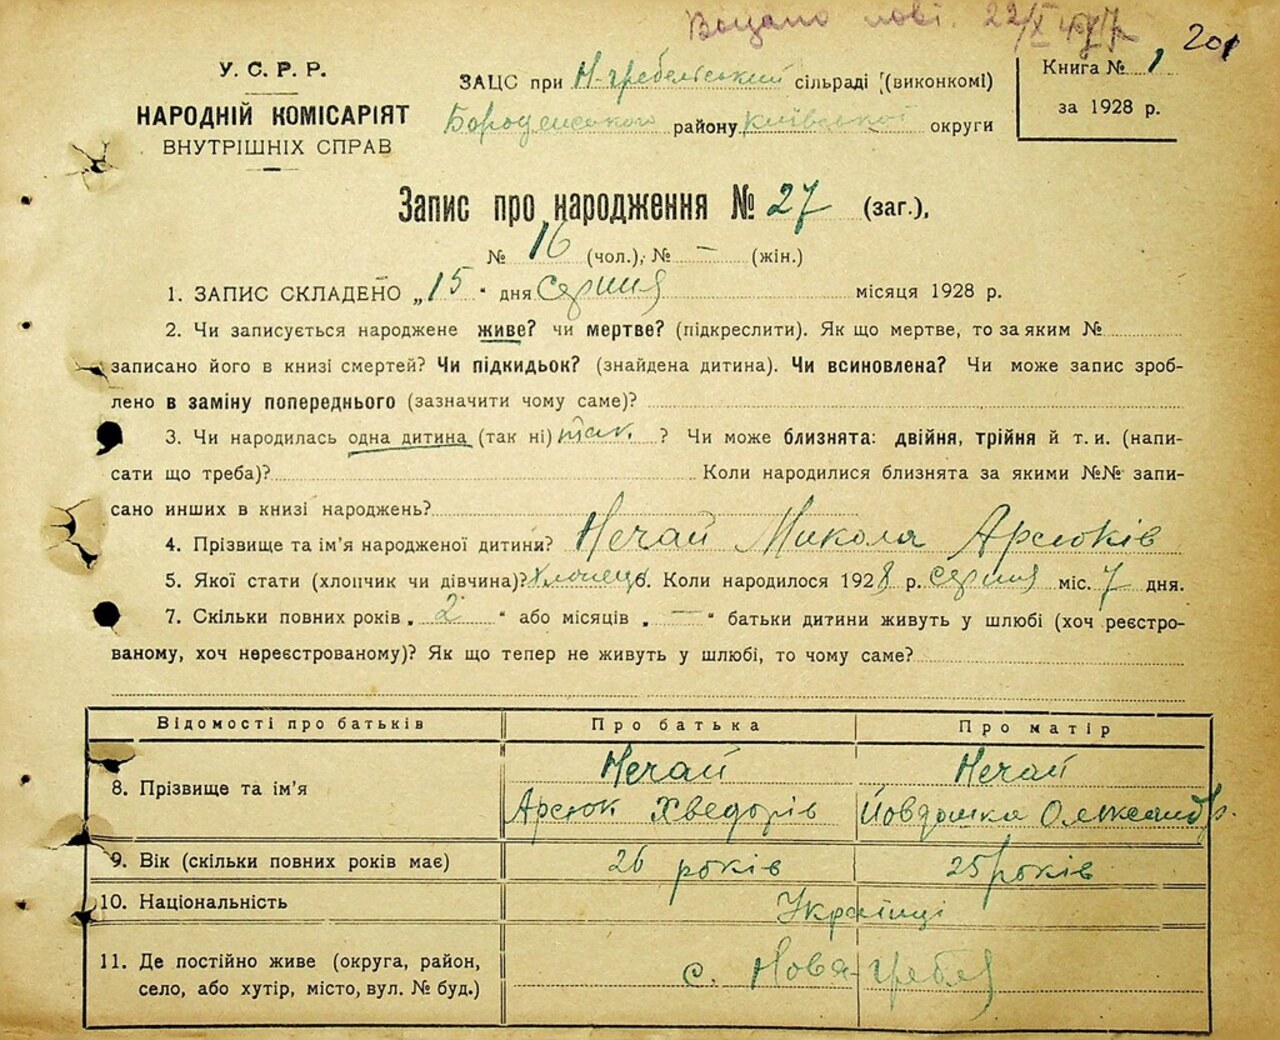 22/X 47 р. 201
У. С. Р. Р.
НАРОДНІЙ КОМІСАРІЯТ
ВНУТРІШНІХ СПРАВ
ЗАЦС при Н-гребельський сільраді (виконкомі)
Бородянського району Київської округи
Книга № 1
за 1928 р.
Запис про народження № 27 (заг.),
№ 16 (чол.), № — (жін.)
1. ЗАПИС СКЛАДЕНО „15" дня серпня місяця 1928 р.
2. Чи записується народжене живе? чи мертве? (підкреслити). Як що мертве, то за яким №
записано його в книзі смертей? Чи підкидьок? (знайдена дитина). Чи всиновлена? Чи може запис зроб-
лено в заміну попереднього (зазначити чому саме)?
3. Чи народилась одна дитина (так ні) так. ? Чи може близнята: двійня, трійня й т. и. (напи-
сати що треба)? Коли народилися близнята за якими №№ запи-
сано инших в книзі народжень?
4. Прізвище та ім'я народженої дитини? Нечай Микола Арсюків
5. Якої стати (хлопчик чи дівчина)? Хлопець 6. Коли народилося 1928 р. серпня міс. 7 дня.
7. Скільки повних років „ 2 " або місяців „ — " батьки дитини живуть у шлюбі (хоч реєстро-
ваному, хоч нереєстрованому)? Як що тепер не живуть у шлюбі, то чому саме?
Відомості про батьків Про батька Про матір
8. Прізвище та ім'я
Нечай Нечай
Арсюк Хведорів Йовдошка Олександр.
9. Вік (скільки повних років має) 26 років 25 років
10. Національність Українці
11. Де постійно живе (округа, район,
село, або хутір, місто, вул. № буд.)
с. Нова-гребля